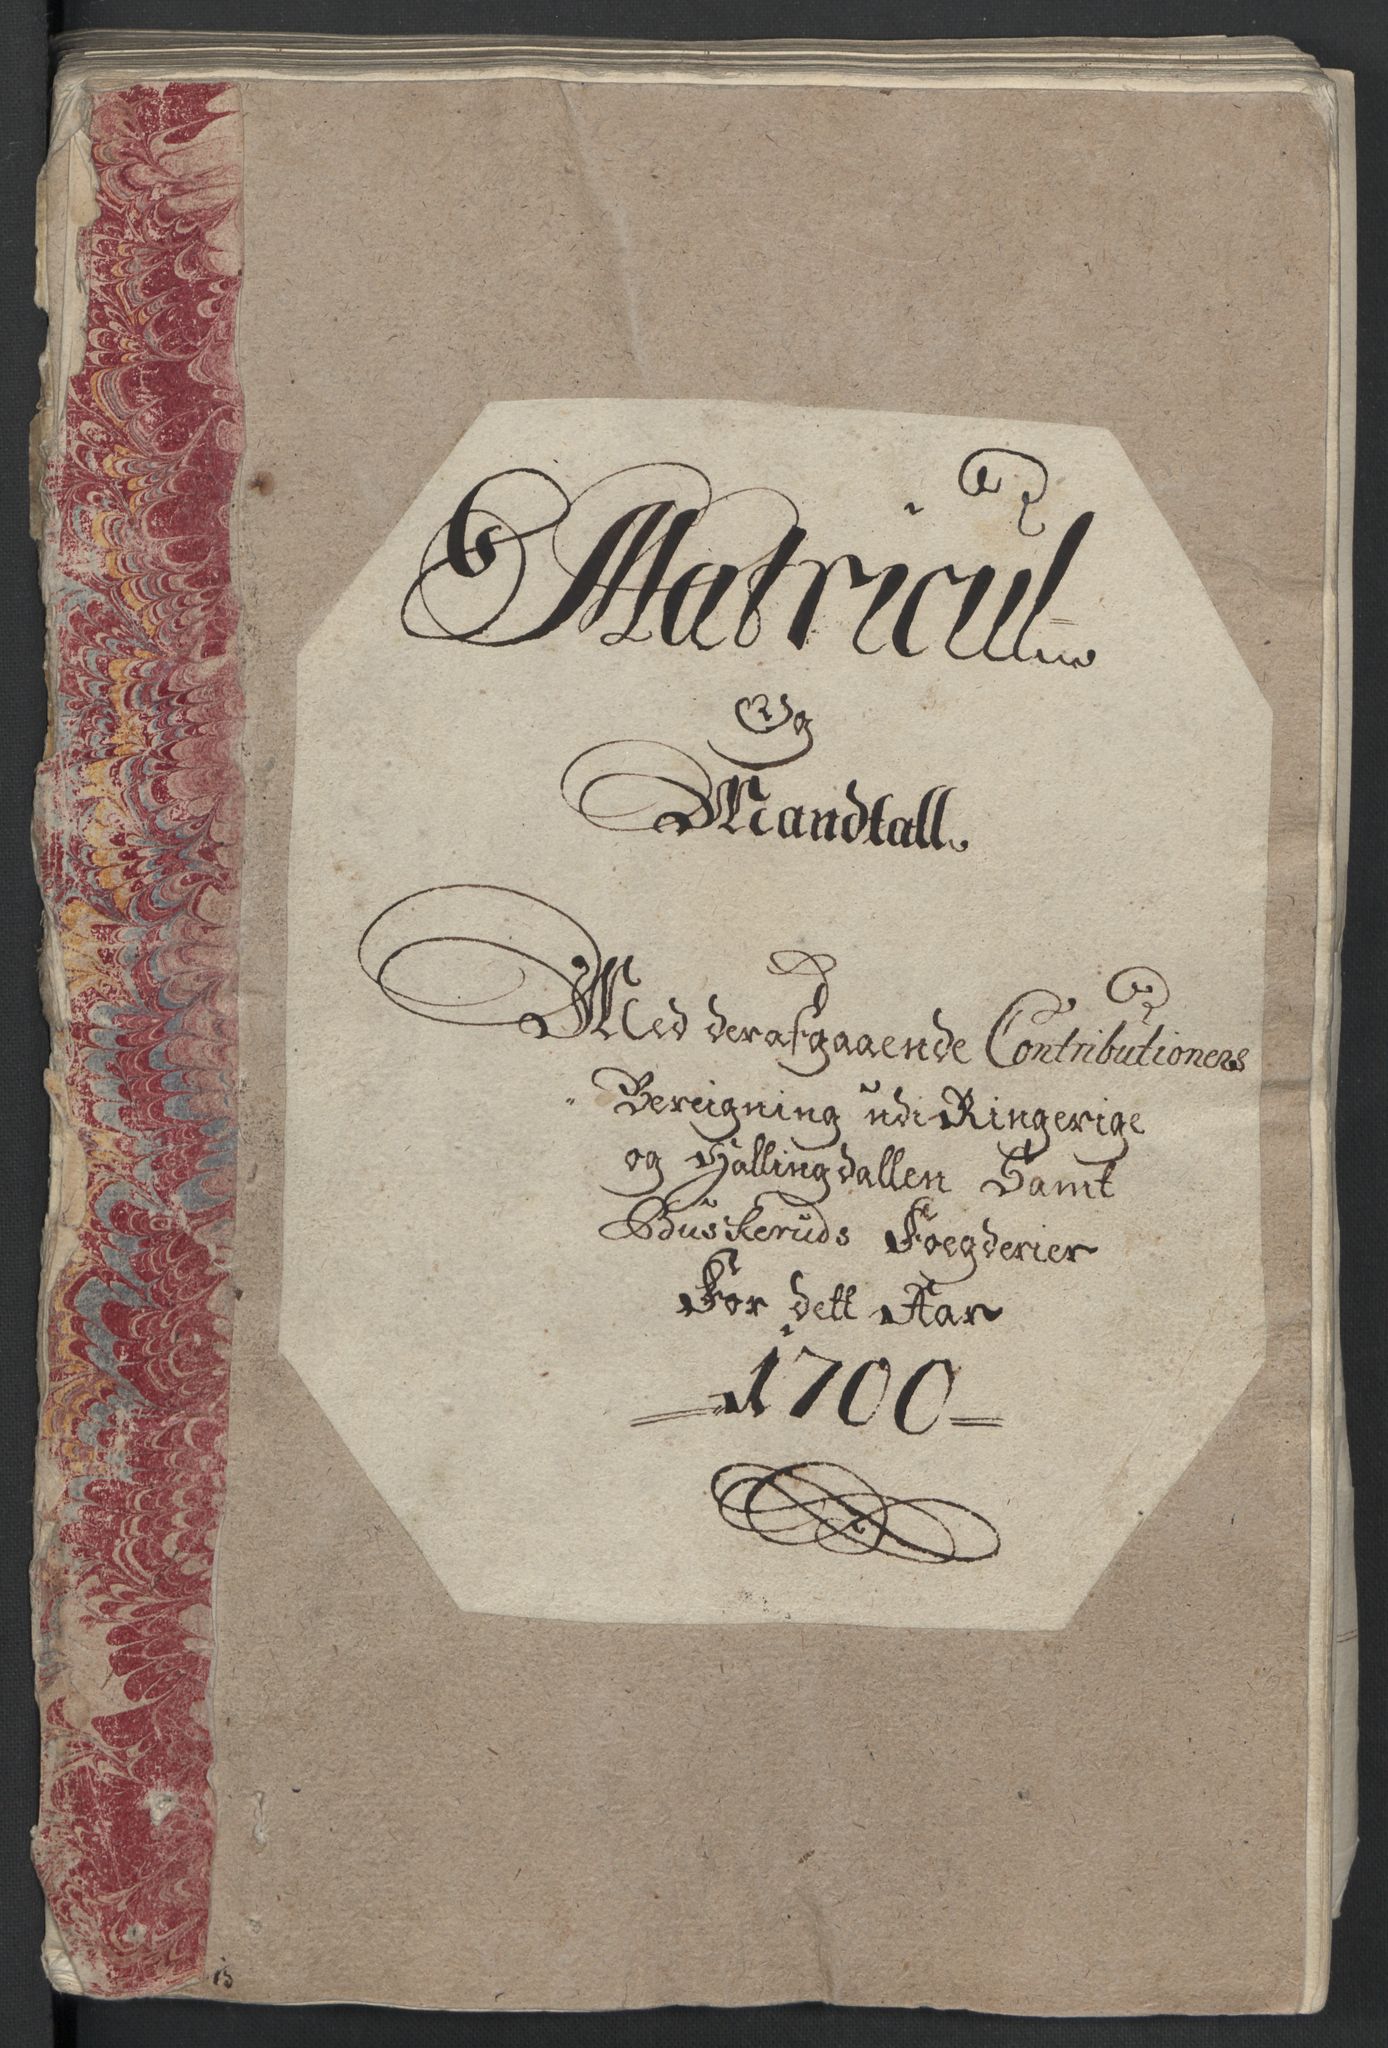 Matricul
Og
Mandtall
Med derafgaaende Contributioners
Bereigning udi Ringerige
og Hallingdallen Samt
Buskeruds Foegderier
For dett Aar
1700